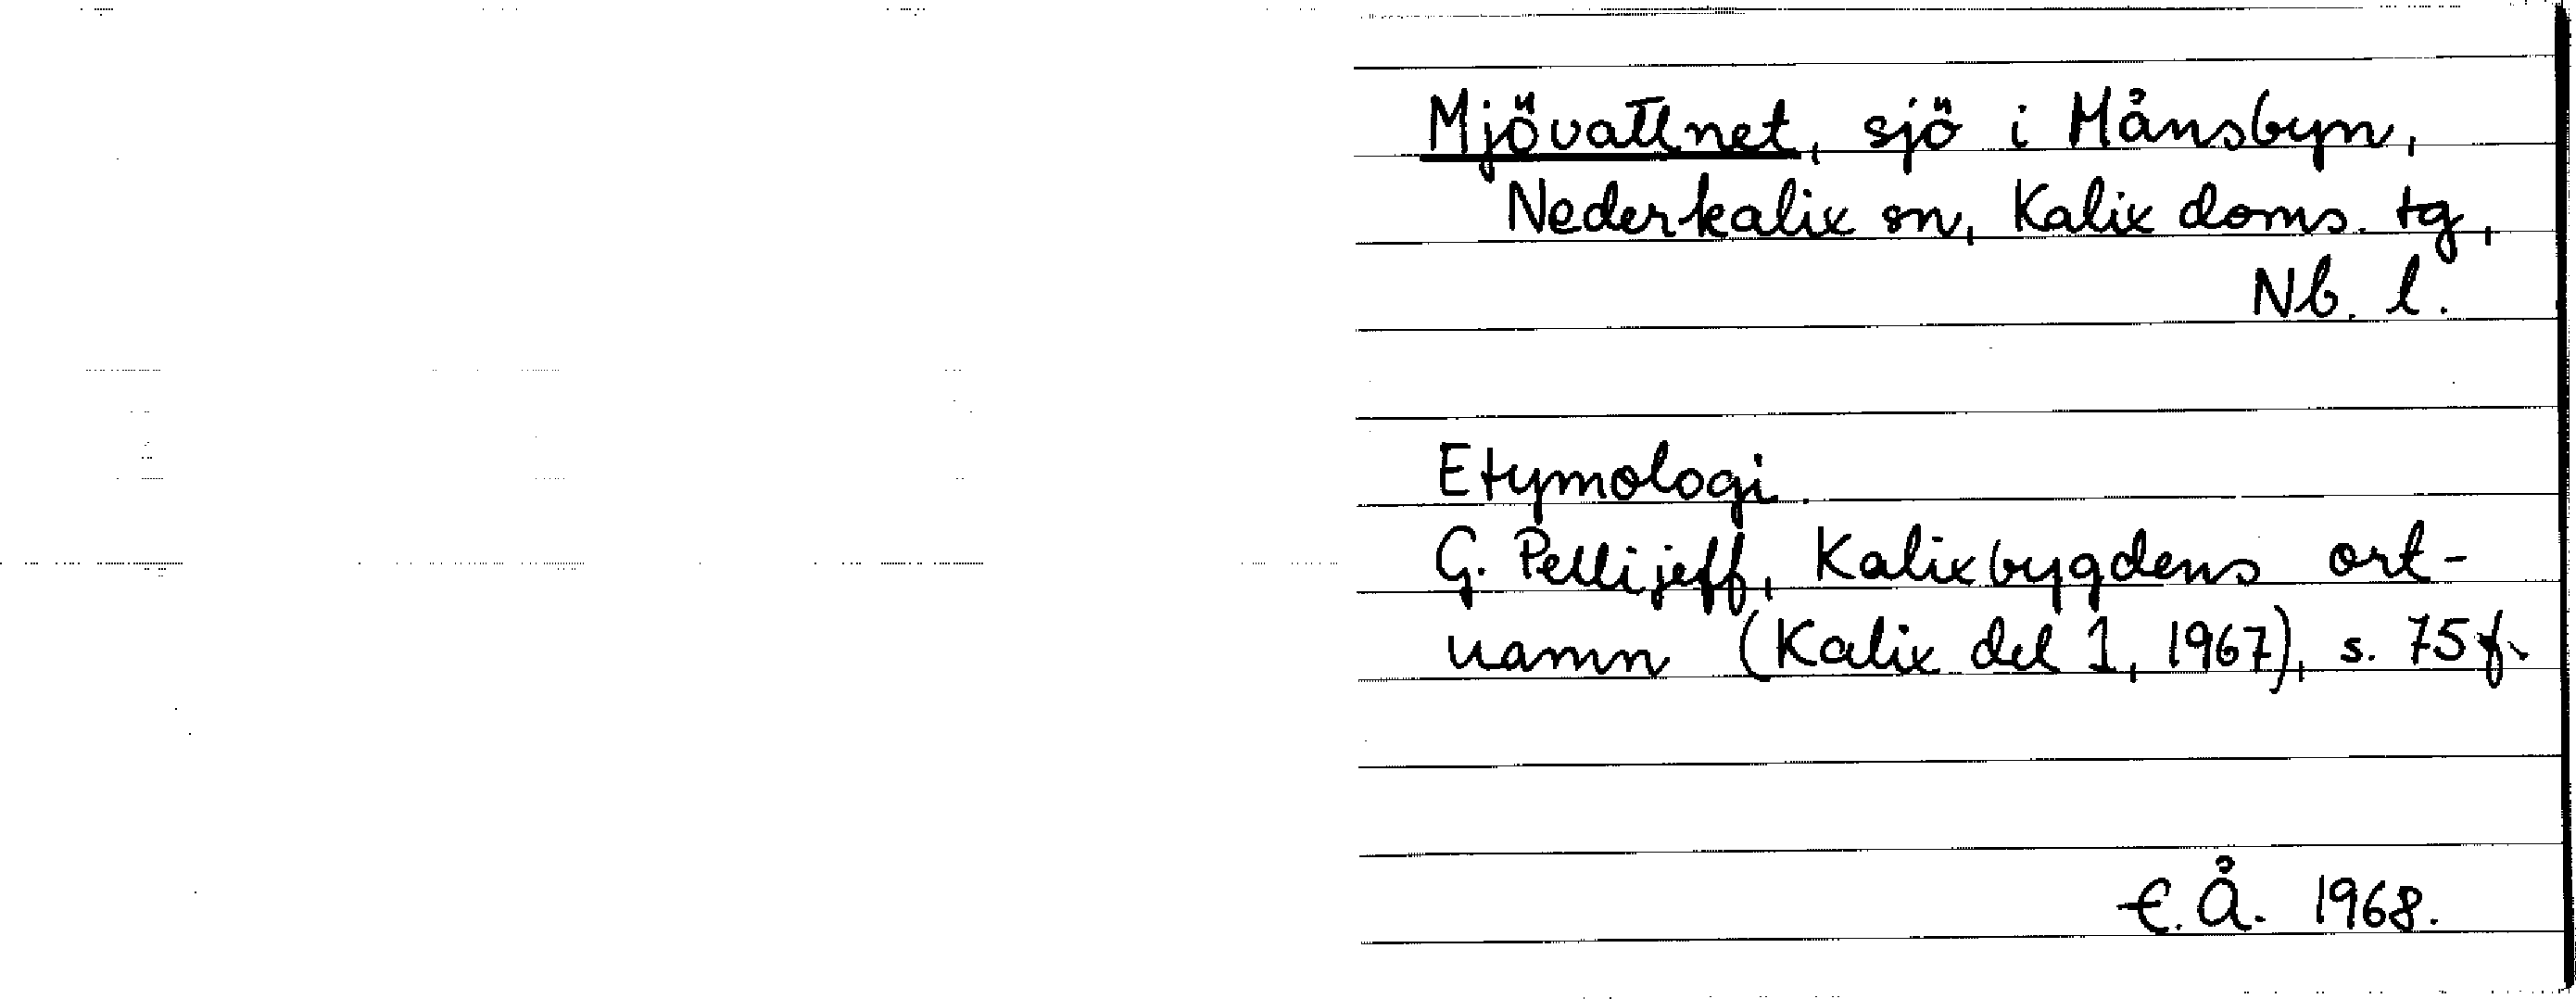 Mjövattnet, sjö i Månsbyn,
Nederkalix sn, Kalix doms. tg,
Nb. l.
Etymologi.
G. Pellijeff, Kalixbygdens ort-
namn (Kalix del 1, 1967), s. 75 f.
E. Å. 1968.